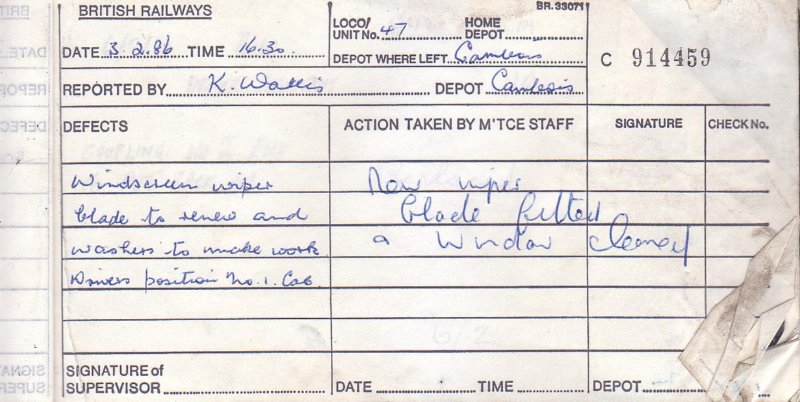 BRITISH RAILWAYS
BR. 33071
DATE 3.2.86 TIME 16.30
LOCO/ UNIT No. 47 HOME DEPOT
DEPOT WHERE LEFT Cambois
C 914459
REPORTED BY K. Wallis DEPOT Cambois
DEFECTS ACTION TAKEN BY M'TCE STAFF SIGNATURE CHECK No.
Windscreen wiper New wiper
blade to renew and blade fitted
washers to make work a window cleaned
Drivers position No. 1. Cab.
SIGNATURE of
SUPERVISOR DATE TIME DEPOT